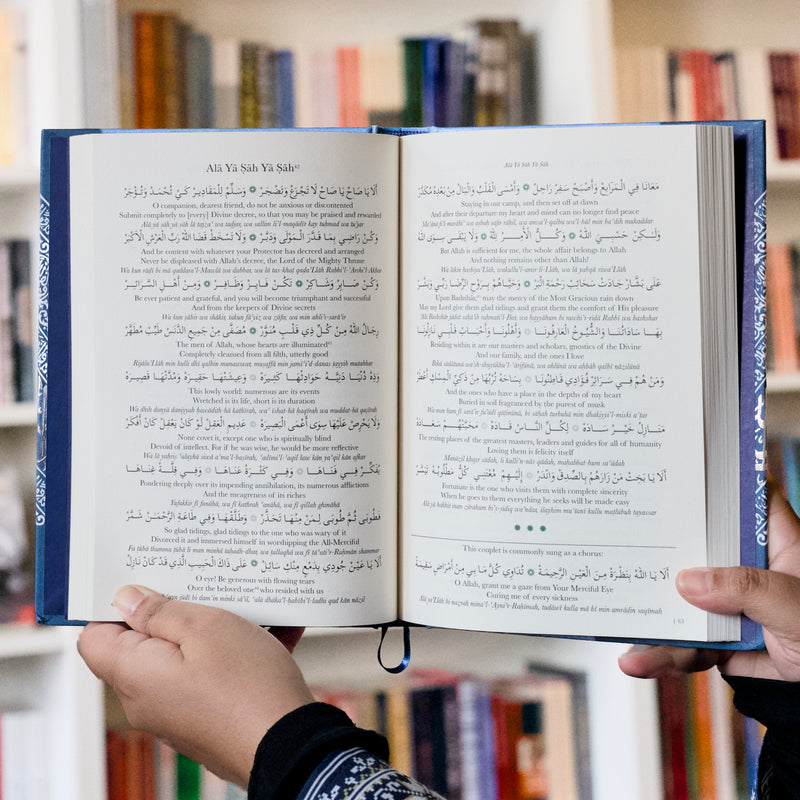 Alā Yā Ṣāḥ Yā Ṣāḥ⁶²
أَلَا يَا صَاحْ يَا صَاحْ لَا تَجْزَعْ وَتَضْجَرْ ۞ وَسَلِّمْ لِلْمَقَادِيرْ كَيْ تُحْمَدْ وَتُؤْجَرْ
O companion, dearest friend, do not be anxious or discontented
Submit completely to [every] Divine decree, so that you may be praised and rewarded
Alā yā ṣāḥ yā ṣāḥ lā tajzaʿ wa taḍjar, wa sallim li'l-maqādīr kay tuḥmad wa tu'jar
وَكُنْ رَاضِي بِمَا قَدَّرَ الْمَوْلَى وَدَبَّرْ ۞ وَلَا تَسْخَطْ قَضَا اللهْ رَبِّ الْعَرْشِ الْأَكْبَرْ
And be content with whatever your Protector has decreed and arranged
Never be displeased with Allah's decree, the Lord of the Mighty Throne
Wa kun rāḍī bi mā qaddara'l-Mawlā wa dabbar, wa lā tas-khaṭ qaḍa'Llāh Rabbi'l-ʿArshi'l-Akbar
وَكُنْ صَابِرْ وَشَاكِرْ ۞ تَكُنْ فَايِزْ وَظَافِرْ ۞ وَمِنْ أَهْلِ السَّرَائِرْ
Be ever patient and grateful, and you will become triumphant and successful
And from the keepers of Divine secrets
Wa kun ṣābir wa shākir, takun fā'iz wa ẓāfir, wa min ahli's-sarā'ir
رِجَالُ اللهْ مِنْ كُلِّ ذِي قَلْبٍ مُنَوَّرْ ۞ مُصَفَّى مِنْ جَمِيعِ الدَّنَسْ طَيِّبْ مُطَهَّرْ
The men of Allah, whose hearts are illuminated⁶³
Completely cleansed from all filth, utterly good
Rijālu'Llāh min kulli dhī qalbin munawwar, muṣaffā min jamīʿi'd-danas ṭayyib muṭahhar
وَذِهْ دُنْيَا دَنِيَّهْ حَوَادِثْهَا كَثِيرَهْ ۞ وَعِيشَتْهَا حَقِيرَهْ وَمُدَّتْهَا قَصِيرَهْ
This lowly world: numerous are its events
Wretched is its life, short is its duration
Wa dhih dunyā daniyyah ḥawādith-hā kathīrah, wa ʿīshat-hā ḥaqīrah wa muddat-hā qaṣīrah
وَلَا يَحْرِصْ عَلَيْهَا سِوَى أَعْمَى الْبَصِيرَهْ ۞ عَدِيمِ الْعَقْلِ لَوْ كَانَ يَعْقِلْ كَانَ أَفْكَرْ
None covet it, except one who is spiritually blind
Devoid of intellect. For if he was wise, he would be more reflective
Wa lā yaḥriṣ ʿalayhā siwā aʿma'l-baṣīrah, ʿadīmi'l-ʿaqli law kān yaʿqil kān afkar
يُفَكِّرْ فِي فَنَاهَا ۞ وَفِي كَثْرَةْ عَنَاهَا ۞ وَفِي قِلَّةْ غِنَاهَا
Pondering deeply over its impending annihilation, its numerous afflictions
And the meagreness of its riches
Yufakkir fī fanāhā, wa fī kathrah ʿanāhā, wa fī qillah ghināhā
فَطُوبَى ثُمَّ طُوبَى لِمَنْ مِنْهَا تَحَذَّرْ ۞ وَطَلَّقْهَا وَفِي طَاعَةِ الرَّحْمٰنْ شَمَّرْ
So glad tidings, glad tidings to the one who was wary of it
Divorced it and immersed himself in worshipping the All-Merciful
Fa ṭūbā thumma ṭūbā li man minhā taḥadh-dhar, wa ṭallaqhā wa fī ṭāʿati'r-Raḥmān shammar
أَلَا يَا عَيْنْ جُودِي بِدَمْعٍ مِنْكِ سَائِلْ ۞ عَلَى ذَاكَ الْحَبِيبِ الَّذِي قَدْ كَانَ نَازِلْ
O eye! Be generous with flowing tears
Over the beloved one⁶⁴ who resided with us
Alā Yā Ṣāḥ Yā Ṣāḥ
مَعَانَا فِي الْمَرَابِعْ وَأَصْبَحْ سَفِرْ رَاحِلْ ۞ وَأَمْسَى الْقَلْبُ وَالْبَالُ مِنْ بَعْدِهْ مُكَدَّرْ
Staying in our camp, and then set off at dawn
And after their departure my heart and mind can no longer find peace
Maʿānā fi'l-marābiʿ wa aṣbaḥ safir rāḥil, wa amsa'l-qalbu wa'l-bāl min baʿdih mukaddar
وَلَـٰكِنْ حَسْبِيَ اللهْ ۞ وَكُلُّ الْأَمْرِ للهْ ۞ وَلَا يَبْقَى سِوَى اللهْ
But Allah is sufficient for me, the whole affair belongs to Allah
And nothing remains other than Allah!
Wa lākin ḥasbiya'Llāh, wa kullu'l-amr li-Llāh, wa lā yabqā siwa'Llāh
عَلَى بَشَّارْ جَادَتْ سَحَائِبْ رَحْمَةِ الْبَرْ ۞ وَحَيَّاهُمْ بِرَوْحِ الرِّضَا رَبِّي وَبَشَّرْ
Upon Bashshār,⁶⁵ may the mercy of the Most Gracious rain down
May my Lord give them glad tidings and grant them the comfort of His pleasure
ʿAlā Bashshār jādat saḥā'ib raḥmati'l-Bar, wa ḥayyāhum bi rawḥi'r-riḍā Rabbī wa bashshar
بِهَا سَادَاتُنَا وَالشُّيُوخُ الْعَارِفُونَا ۞ وَأَهْلُونَا وَأَحْبَابُ قَلْبِي نَازِلُونَا
Residing within it are our masters and scholars, gnostics of the Divine
And our family, and the ones I love
Bihā sādātunā wa'sh-shuyūkhu'l-ʿārifūnā, wa ahlūnā wa aḥbābu qalbī nāzilūnā
وَمَنْ هُمْ فِي سَرَائِرْ فُؤَادِي قَاطِنُونَا ۞ بِسَاحَهْ تُرْبُهَا مِنْ ذَكِيِّ الْمِسْكِ أَعْطَرْ
And the ones who have a place in the depths of my heart
Buried in soil fragranced by the purest of musk
Wa man hum fī sarā'ir fu'ādī qāṭinūnā, bi sāḥah turbuhā min dhakiyyi'l-miski aʿṭar
مَنَازِلْ خَيْرِ سَادَهْ ۞ لِكُلِّ النَّاسِ قَادَهْ ۞ مَحَبَّتْهُمْ سَعَادَهْ
The resting places of the greatest masters, leaders and guides for all of humanity
Loving them is felicity itself
Manāzil khayr sādah, li kulli'n-nās qādah, maḥabbat-hum saʿādah
أَلَا يَا بَخْتَ مَنْ زَارَهُمْ بِالصِّدْقِ وَانْدَرْ ۞ إِلَيْهِمْ مُعْتَنِي كُلُّ مَطْلُوبُهْ تَيَسَّرْ
Fortunate is the one who visits them with complete sincerity
When he goes to them everything he seeks will be made easy
Alā yā bakhta man zārahum bi'ṣ-ṣidq wa'ndar, ilayhim muʿtanī kullu maṭlūbuh tayassar
This couplet is commonly sung as a chorus:
أَلَا يَا اللهْ بِنَظْرَةْ مِنَ الْعَيْنِ الرَّحِيمَةْ ۞ تُدَاوِي كُلَّ مَا بِي مِنْ أَمْرَاضٍ سَقِيمَةْ
O Allah, grant me a gaze from Your Merciful Eye
Curing me of every sickness
Alā ya'Llāh bi naẓrah mina'l-ʿAyni'r-Raḥīmah, tudāwī kulla mā bī min amrāḍin saqīmah
| 63